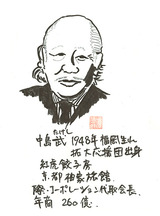 たけし
中島武 1948年福岡生れ
拓大応援団出身
紅虎餃子房
京都柚家旅館
際コーポレーション代取会長
年商 260億